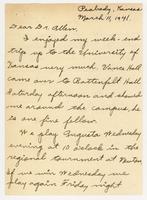 Peabody, Kansas
March 11, 1941.
Dear Dr. Allen:
I enjoyed my week-end
trip up to the University of
Kansas very much. Vance Hall
came over to Battenfeld Hall
Saturday afternoon and showed
me around the campus, he
is one fine fellow.
We play Augusta Wednesday
evening at 10 o'clock in the
regional tournament at Newton.
If we win Wednesday we
play again Friday night